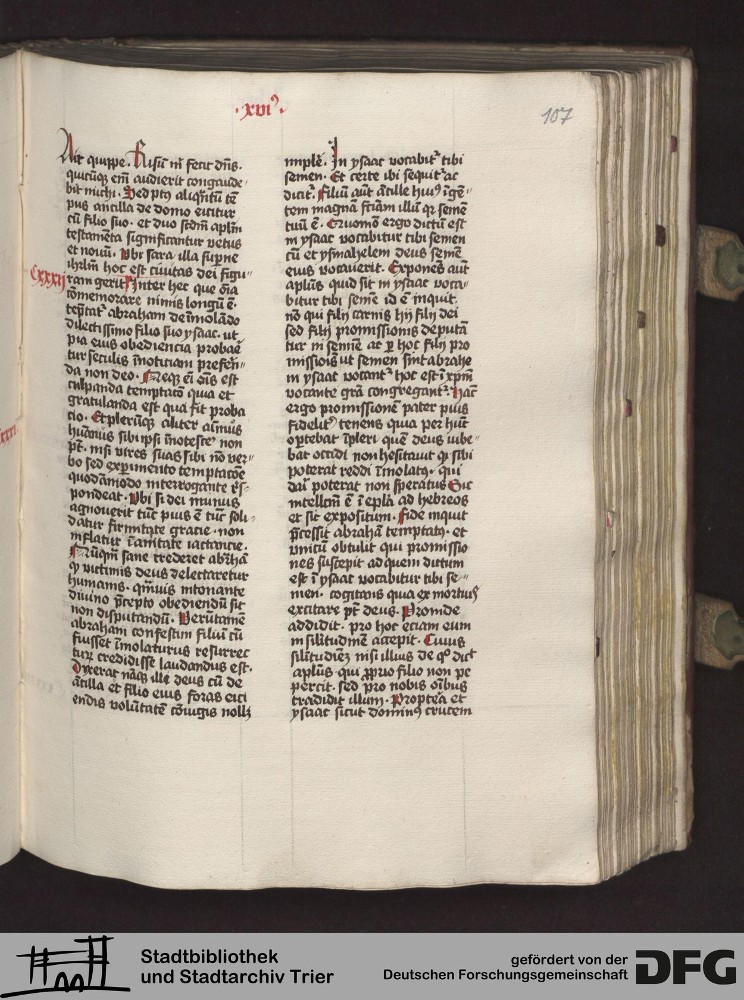 ·xvi⁹·
107
Ait quippe. Risū m̄ fecit dn̄s.
quicūqꝫ em̄ audierit congaude
bit michi. Sed pꝰ aliqn̄tū tē
pus ancilla de domo eicitur
cū filio suo. et duo scd̄m apłm
testamēta significantur vetus
et nouū. Vbi sara illa suꝑne
ihrłm hoc est ciuitas dei figu
Cxxxij
ram gerit Inter hec que oīa
cōmemorare nimis longū ē.
tēptat abraham de īmolādo
dilectissimo filio suo ysaac. ut
pia eius obediencia probaē
tur seculis ī noticiam prefeꝝ
da non deo. Neqꝫ eī oīs est
culpanda temptacō quia et
gratulanda est qua fit proba
cio. Et plerūqꝫ aliter aīmus
hūanus sibi ipsi īnoteste non
pt̄. nisi vires suas sibi nō ver
bo sed experimento temptacōe
quodāmodo interrogante r̄s
pondeat. Vbi si dei munus
agnouerit tūc pius ē tūc soli
datur firmitate gracie. non
inflatur īanitate iactancie.
Nūqm̄ sane crederet abrahā
ꝙ victimis deus delectaretur
humanis. qm̄uis intonante
diuino p̄cepto obediendū sit
non disputandū. Verūtamē
abraham confestim filiū cū
fuisset īmolaturus resurrec
turꝝ credidisse laudandus est.
Dixerat nāqꝫ ille deus cū de
ācilla et filio eius foras eici
endis volūtatē cōiugis nollꝫ
implē. In ysaac vocabit̉ tibi
semen. Et certe ibi sequit̉ ac
dicit̉. Filiū aūt ācille huiꝰ ī gē
tem magnā faciam illū qꝛ semē
tuū ē. Quomō ergo dictū est
in ysaac vocabitur tibi semen
cū et ysmahelem deus semē
eius vocauerit. Exponēs aūt
apłus quid sit in ysaac voca
bitur tibi semē id ē inquit.
nō qui filij carnis hij filij dei
sed filij promissionis deputā
tur in semīe ac ꝑ hoc filij pro
missiois ut semen sint abrahe
in ysaac vocant̉ hoc est ī xp̄m
vocante grā congregant̉. Hāc
ergo promissionē pater pius
fideliꝰ tenens quia per hūc
oꝑtebat īpleri quē deus iube
bat occidi non hesitauit ꝙ sibi
poterat reddi īmolatꝰ. qui
dari poterat non speratus Sic
intellc̄m ē ī epła ad hebreos
et sic expositum. Fide inquit
p̄cessit abrahā temptatꝰ. et
vnicū obtulit qui promissio
nes suscepit ad quem dictum
est ī ysaac vocabitur tibi se
men. cogitans quia ex mortuis
excitare pt̄ deus. Proinde
addidit. pro hoc eciam eum
in silitudinē accepit. Cuius
silitudiēꝫ nisi illius de qͦ dicit
aplus. qui ꝓprio filio non pe
percit. sed pro nobis oībus
tradidit illum. Proptea et
ysaac sicut dominꝰ crucem
Stadtbibliothek
und Stadtarchiv Trier
gefördert von der
Deutschen Forschungsgemeinschaft
DFG